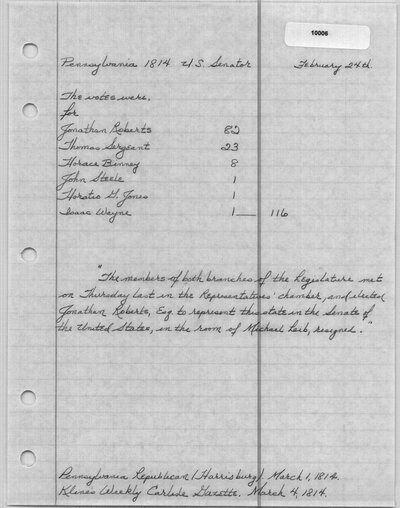 10006
Pennsylvania 1814 U.S. Senator February 24th.
The votes were,
for
Jonathan Roberts 82
Thomas Sergeant 23
Horace Binney 8
John Steele 1
Horatio G. Jones 1
Isaac Wayne 1 116
"The members of both branches of the Legislature met
on Thursday last in the Representatives' chamber, and elected
Jonathan Roberts, Esq. to represent this state in the Senate of
the United States, in the room of Michael Leib, resigned."
Pennsylvania Republican (Harrisburg). March 1, 1814.
Klines Weekly Carlisle Gazette. March 4, 1814.